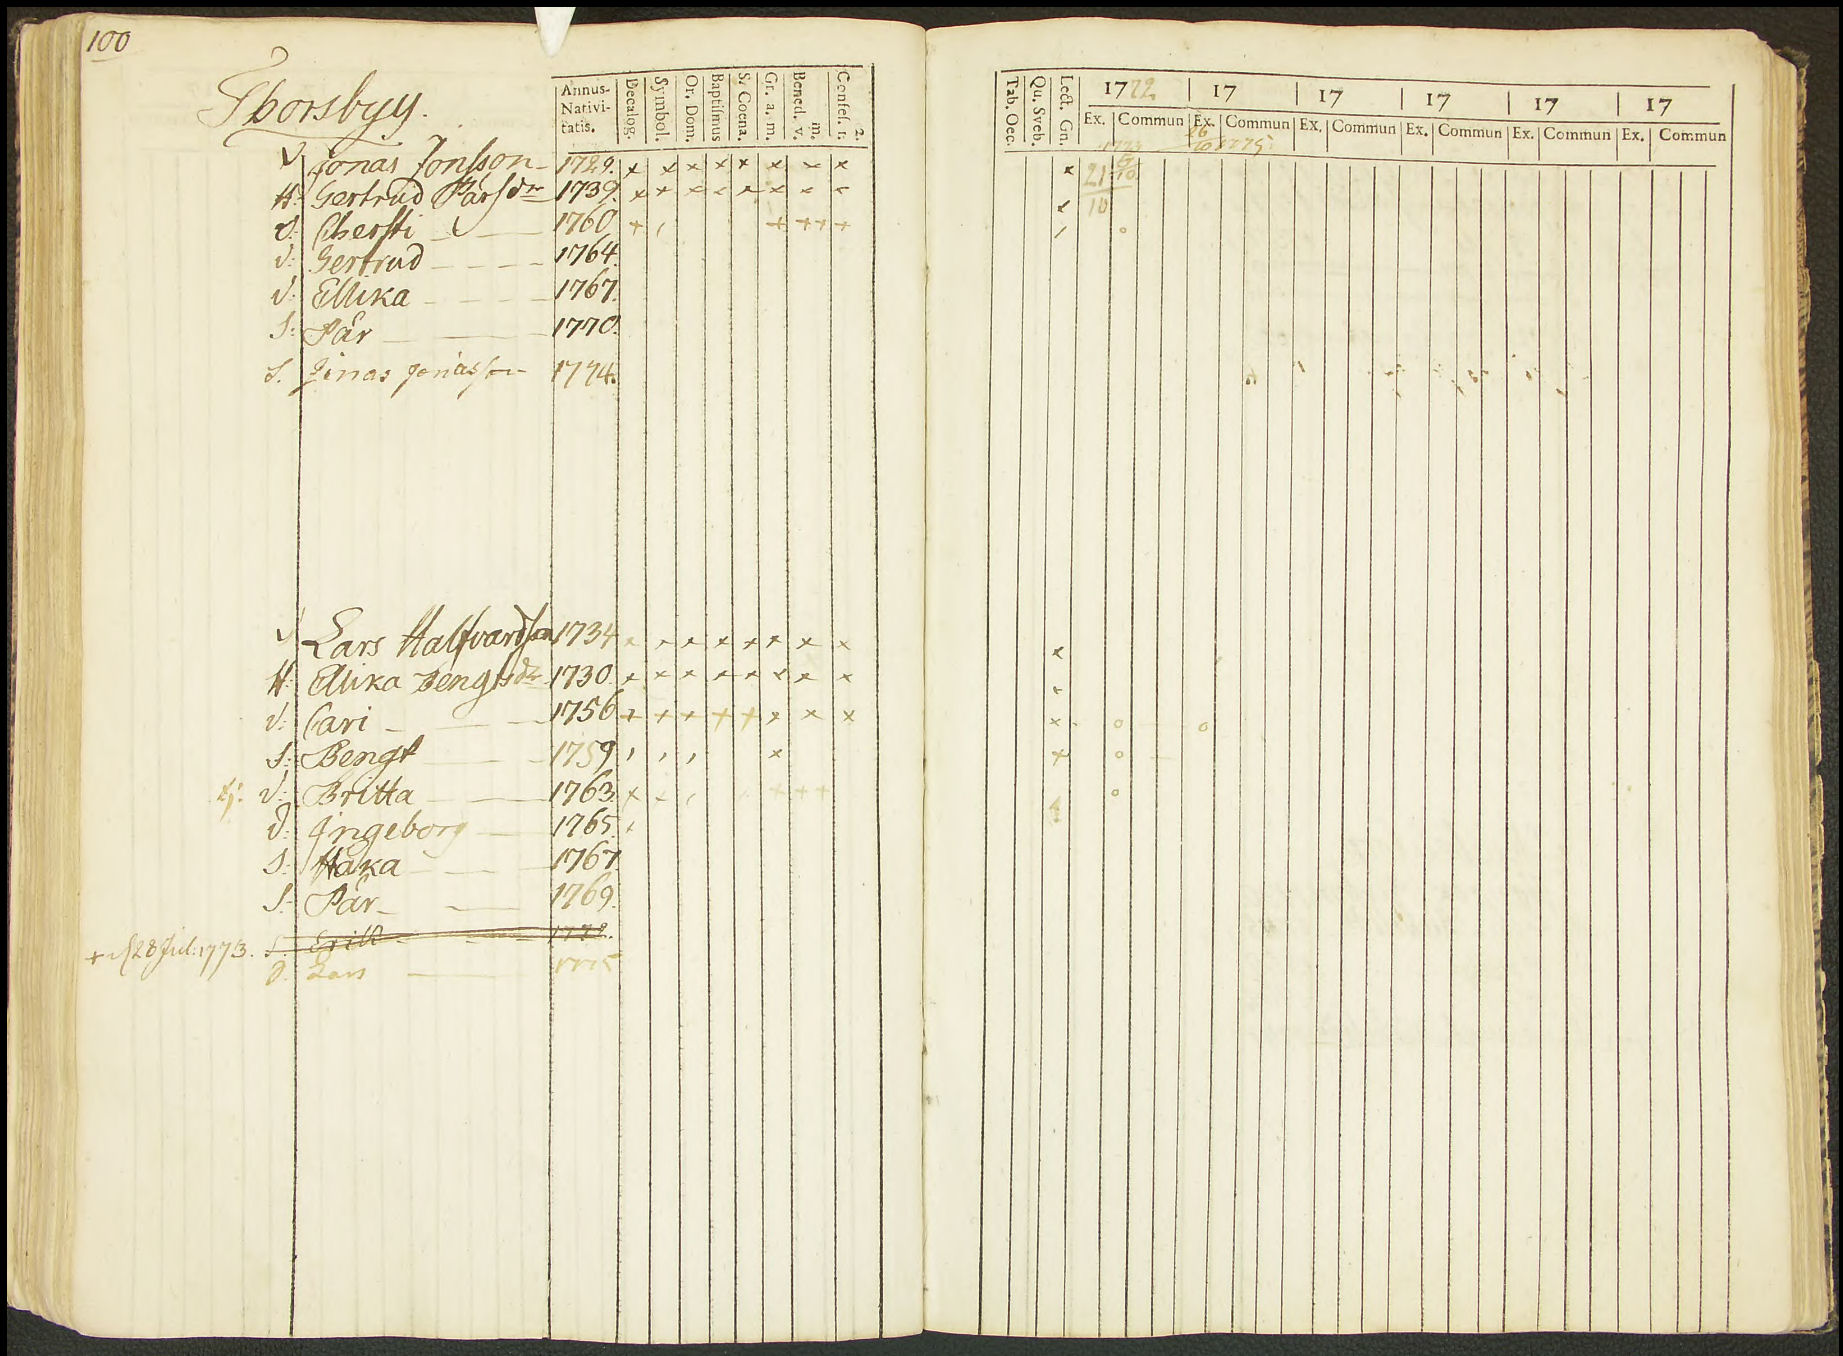 100
Thorsbyy.
Annus Nativitatis. Decalog. Symbol. Or. Dom. Baptismus S. Coena. Gr. a. m. Bened. v. m. Confes. 1. 2.
Jonas Jonsson 1729.
H: Gertrud Pärsdr 1739.
d: Chersti 1760
d: Gertrud 1764.
d: Ellika 1767.
S: Pär 1770.
S. Jonas Jonasson 1774.
Lars Halfvardson 1734
H: Ellika Bengtsdr 1730
d: Cari 1756
S: Bengt 1759
d: Britta 1763
d: Ingeborg 1765
S: Håka 1767
S: Pär 1769.
+ d 28 Jul: 1773. S. Erik 1772.
Lars 1775
Tab. Oec. Qu. Sveb. Lect. Gn. 1772 17 17 17 17 17
Ex. Commun Ex. Commun Ex. Commun Ex. Commun Ex. Commun Ex. Commun
1773 26/10 1775
21/10